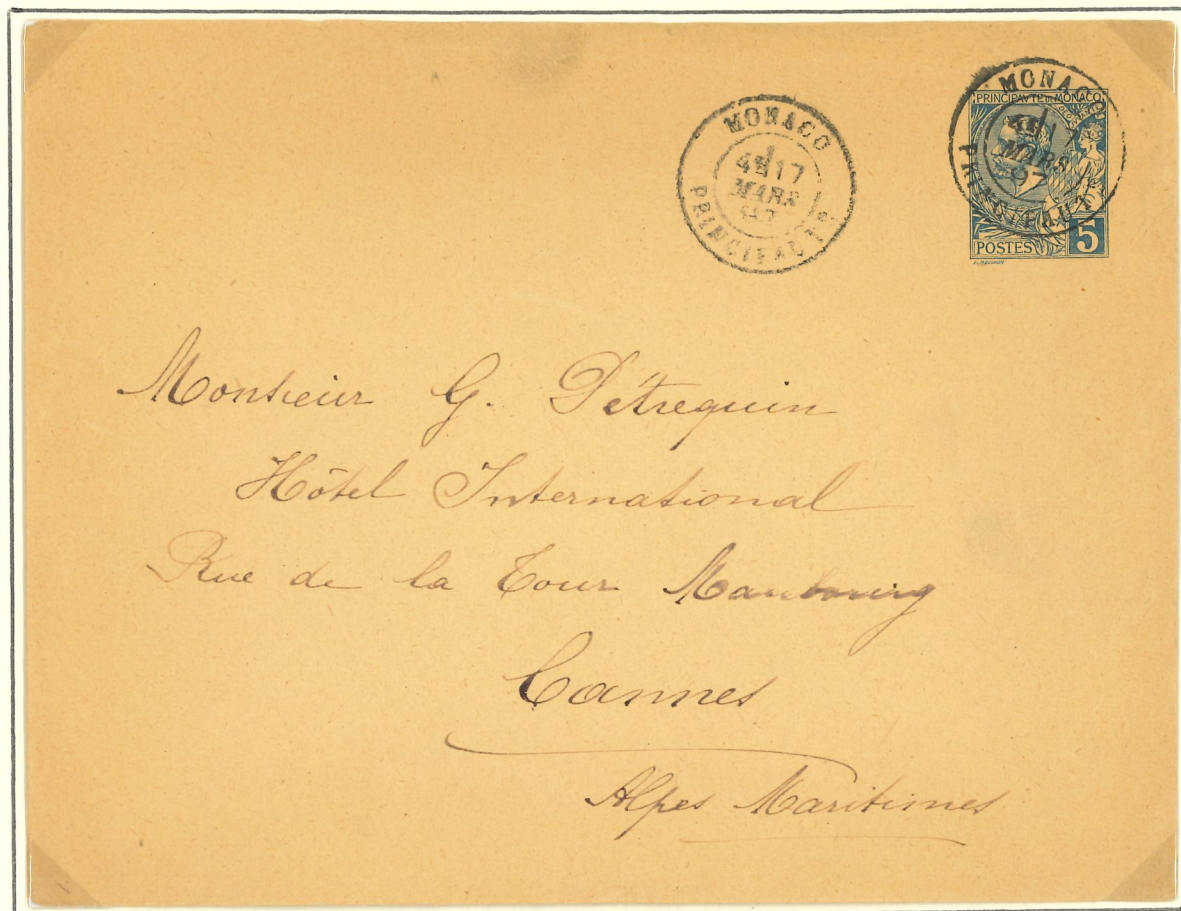 MONACO
4E 17
MARS
PRINCIPAUTÉ
MONACO
4E 17
MARS
97
PRINCIPAUTÉ
PRINCIPAVTE DE MONACO
POSTES 5
Monsieur G. Pétrequin
Hôtel International
Rue de la Tour Maubourg
Cannes
Alpes Maritimes